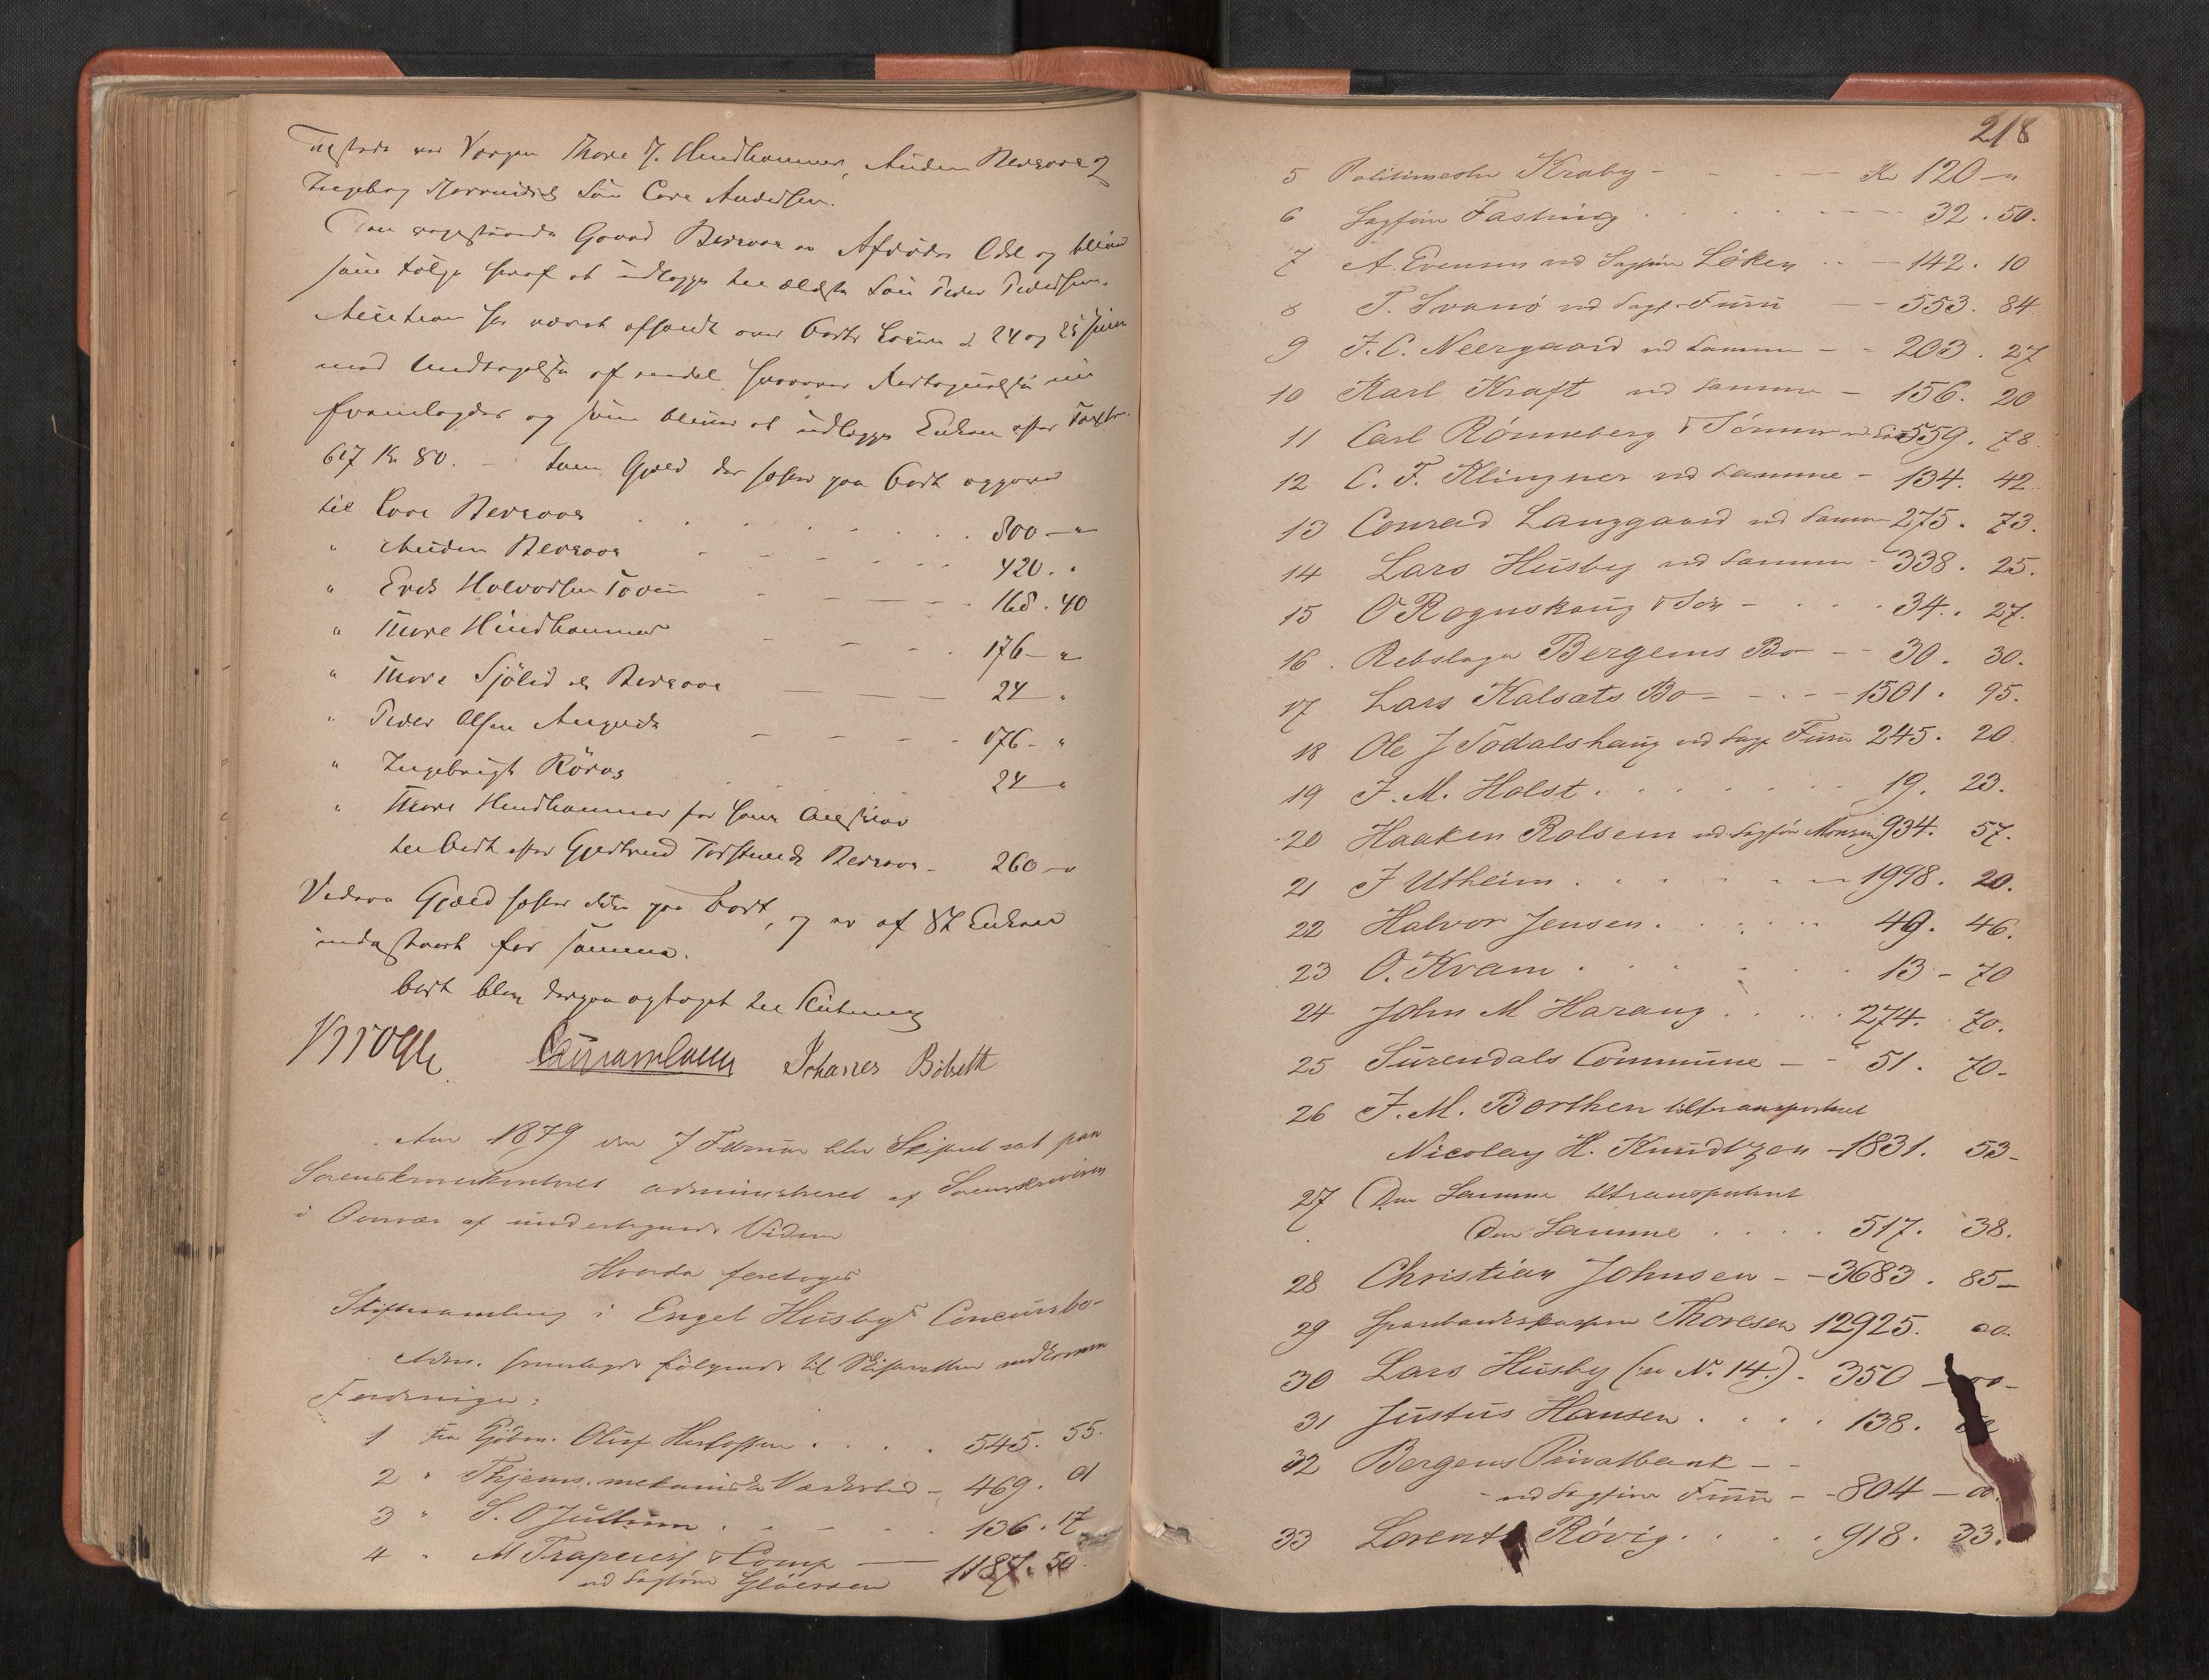 Tilstede var Vergen Thore J. Hindhammer, Anders Bævraas
Ingeborg Sön Lars Andersen.
Den Gaard Bævraas er Afdödes Odel og bliver
som fölge heraf at udlægge til ældste Sön Peder Pedersen.
Auction har været afholdt over Boets Lösöre d. 24 og 25 Juni
med Undtagelse af en del, hvorover Fortegnelse nu
fremlagdes og som bliver at udlægge Enken efter Taxt
617 Kr 80. – Som Gjæld der hefter paa Boet opgaves
til Lars Bævraas . . . . . . 800 – "
" Anders Bævraas - - - - - 420 . "
" Erik Halvorsen - - - - 168 . 40
" Thore Hindhammer - - - 176 – "
" Thore Sjölid - - - 24 "
" Peder Olsen - - - - 176 – "
" Ingebrigt Röraas . . . 24 "
" Thore Hindhammer for
til Boet efter Gjertrud Torstensd. Bævraas - 260 – "
Videre Gjæld hefter ikke paa Boet, og er af St Enken
indestaaet for samme.
Boet blev derpaa optaget til Slutning
Krogh Johannes Bolseth
Aar 1879 den 7 Februar blev Skifteret sat paa
Sorenskriverkontoret administreret af Sorenskriveren
i Overvær af undertegnede Vidner
Hvorda foretoges
Skiftesamling i Engel Husbys Concursbo-
Adm. fremlagde fölgende til Skifteretten indkomne
Fordringer:
1 Fra Kjöbm. Oluf . . . . 545. 55.
2 " Thjems. mekaniske Værksted – 469. 01
3 " S. O Jullum . . . . . 136. 17
4 " M Trapness & Comp — 1187. 50
ved Sagförer Gløersen
218
5 Politimester Kraby - - - — Kr 120 – "
6 Sagförer Fasting . . . . — 32 . 50.
7 A. Evensen ved Sagförer Löken . . — 142. 10
8 T. Svanö ved Sagf. Furu — 553. 84
9 J. C. Neergaard ved Samme – - 203. 27
10 Karl Kraft ved Samme – 156. 20
11 Carl Rönneberg & Sönner ved Sam 559. 78
12 C. F. Klingner ved Samme – 134. 42
13 Conrad Langgaard ved Samme 275. 73.
14 Lars Husby ved Samme - 338. 25.
15 O Rognskaug & Sön - . . . 34. 27.
16. Rebslager Bergems Bo – - 30. 30.
17 Lars Kalsæts Bo - - . - 1501. 95.
18 Ole J Todalshaug ved Sagf Furu 245. 20
19 J. M. Holst . . . . . . 19. 23.
20 Haaken Rolsem ved Sagför Monsen 934. 57.
21 J Utheim . . . . . — 1998. 20.
22 Halvor Jensen . . . . . 49. 46.
23 O. Kvam . . . . . . 13 - 70
24 John M Harang . . . . . 274. 70.
25 Surendals Commune – - 51. 70-
26 J. M. Borthen tiltransporteret
Nicolay H. Knudtzon – 1831. 53-
27 Den Samme tiltransporteret
Den Samme . . . . 517. 38.
28 Christian Johnsen - - 3683. 85–
29 Sparebankskasserer Thoresen 12925. 00.
30 Lars Husby (se No 14.) . 350 – 00-
31 Justus Hansen . . . . 138.
32 Bergens Privatbank – -
- ved Sagförer Furu – - 804 — 00.
33 Lorents Rövig . . . . 918. 33.